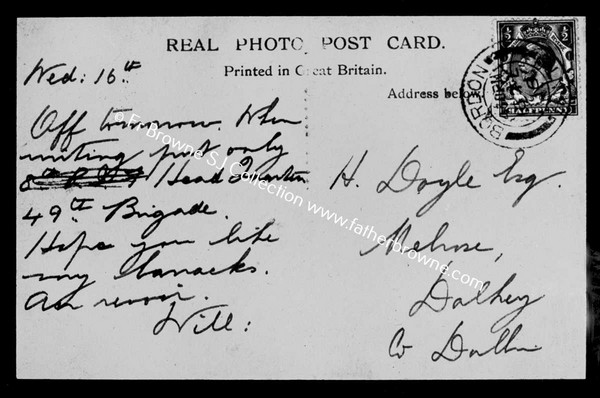 REAL PHOTO POST CARD.
Printed in Great Britain.
Address below
BORDON
½ ½
Wed: 16th
Off tomorrow. When
writing put only
8th R Head Quarters
49th Brigade.
Hope you like
my barracks.
Au revoir.
Will:
H. Doyle Esq.
Melrose,
Dalkey
Co Dublin
© Fr Browne S.J. Collection www.fatherbrowne.com